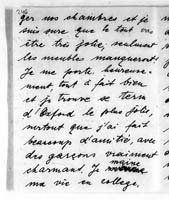 ger nos chambres et je
suis sure que le tout va
être très jolie, seulment
les meubles manqueront.
Je me porte heureuse-
ment, tout à fait bien
et je trouve ce term
d'Oxford le plus joli
surtout que j'ai fait
beaucoup d'amitié, avec
des garçons vraiment
charmant. Je
ma vie en college.